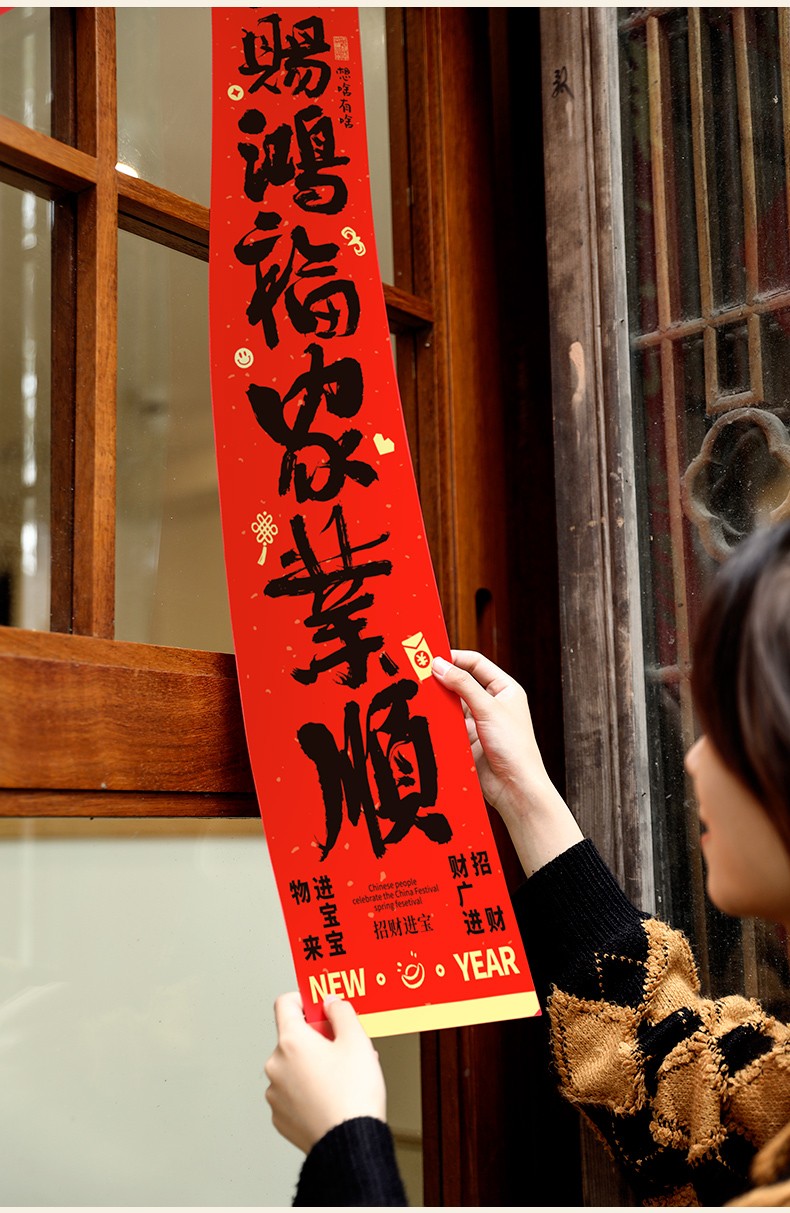 賜鴻福家業順
想啥有啥
招财
财广进
进宝宝
物来
Chinese people
celebrate the China Festival
spring fesetival
招财进宝
NEW YEAR